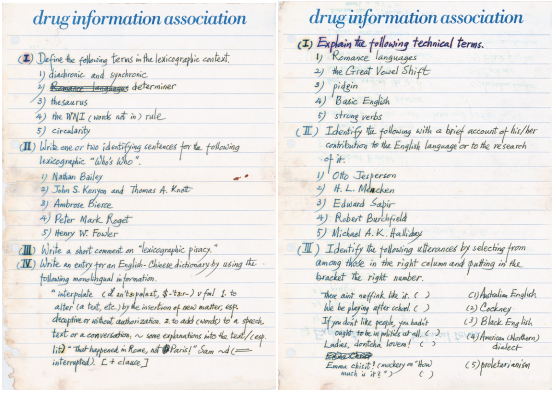 drug information association
(I) Define the following terms in the lexicographic context.
1) diachronic and synchronic
2) determiner
3) thesaurus
4) the WNI (words not in) rule
5) circularity
(II) Write one or two identifying sentences for the following
lexicographic "Who's Who".
1) Nathan Bailey
2) John S. Kenyon and Thomas A. Knott
3) Ambrose Bierce
4) Peter Mark Roget
5) Henry W. Fowler
(III) Write a short comment on "lexicographic piracy."
(IV) Write an entry for an English-Chinese dictionary by using the
following monolingual information.
"interpolate v 1. to
alter (a text, etc.) by the insertion of new matter, esp.
deceptive or without authorization. 2 to add (words) to a speech,
text or a conversation, ~ some explanations into the text/(esp.
lit) "that happened in Rome, not Paris!" Sam ~d (=
interrupted). [+ clause]
drug information association
(I) Explain the following technical terms.
1) Romance languages
2) the Great Vowel Shift
3) pidgin
4) Basic English
5) strong verbs
(II) Identify the following with a brief account of his/her
contribution to the English language or to the research
of it.
1) Otto Jesperson
2) H. L. Mencken
3) Edward Sapir
4) Robert Burchfield
5) Michael A.K. Halliday
(III) Identify the following utterances by selecting from
among those in the right column and putting in the
bracket the right number.
There aint naffink like it. ( ) (1) Australian English
We be playing after school. ( ) (2) Cockney
If you don't like people, you hadn't (3) Black English
ought to be in politics at all. ( ) (4) American (Northern)
Ladies, dontcha lovem! ( ) dialect
Emma chisit! (mockery on "How (5) proletarianism
much is it?") ( )